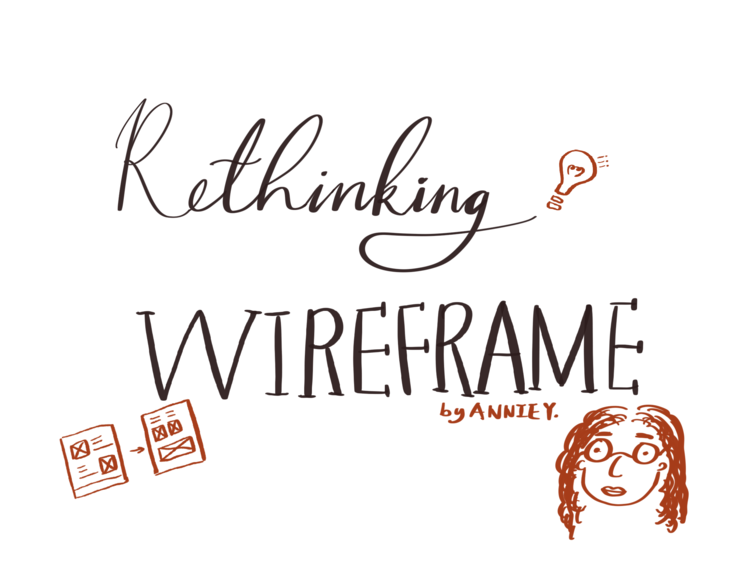 Rethinking
WIREFRAME
by ANNIE Y.